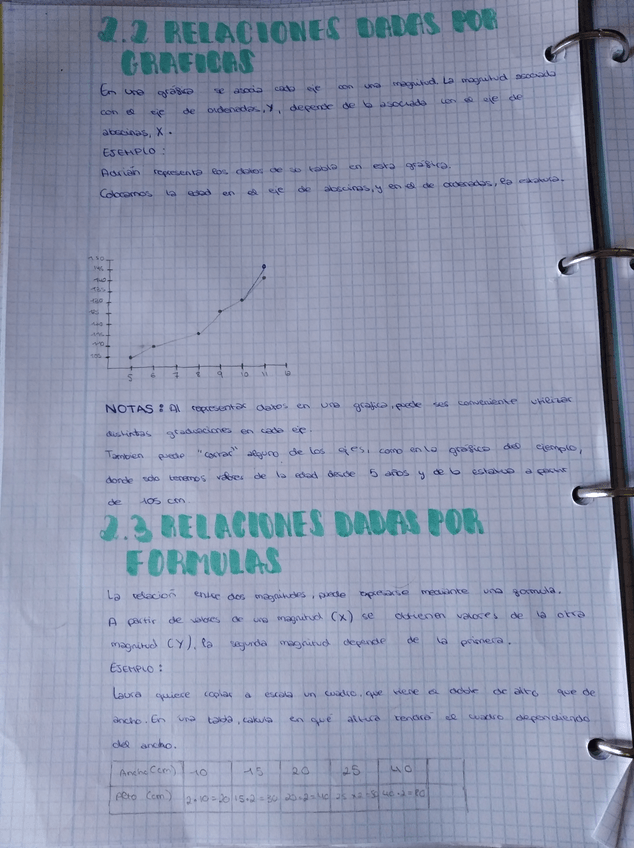 2.2 RELACIONES DADAS POR
GRAFICAS
En una gráfica se asocia cada eje con una magnitud. La magnitud asociada
con el eje de ordenadas, Y, depende de la asociada con el eje de
abscinas, X.
EJEMPLO:
Adrián representa los datos de su tabla en esta gráfica.
Colocamos la edad en el eje de abscinas, y en el de ordenadas, la estatura.
5 6 7 8 9 10 11 12
NOTAS: Al representar datos en una grafica, puede ser conveniente utilizar
distintas graduaciones en cada eje.
Tambien puede "cortar" alguno de los ejes, como en la gráfica del ejemplo,
donde solo tenemos valores de la edad desde 5 años y de la estatura a partir
de 105 cm
2.3 RELACIONES DADAS POR
FORMULAS
La relación entre dos magnitudes, puede expresarse mediante una formula.
A partir de valores de una magnitud (X) se obtienen valores de la otra
magnitud (Y), la segunda magnitud depende de la primera.
EJEMPLO:
Laura quiere copiar a escala un cuadro, que tiene el doble de alto, que de
ancho. En una tabla, calcula en qué altura tendrá el cuadro dependiendo
del ancho.
Ancho (cm) 10 15 20 25 40
(cm) 2·10=20 15·2=30 20·2=40 25·2=50 40·2=80